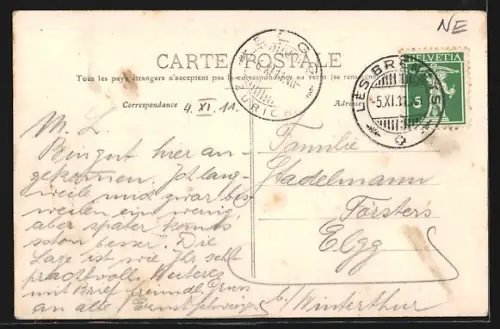 NE
CARTE POSTALE
Tous les pays étrangers n'acceptent pas la correspondance au recto (se renseigner
Correspondance
Adresse
4. XI. 11.
HELVETIA
5
LES BRENETS
-5.XI.11
ZÜRICH
M. L.
Bin gut hier an-
gekommen.
weile und zwar bis
weilen eine wenig,
aber später kommts
schon besser. Die
Lage ist wie Ihr seht
prachtvoll. Weiteres
mit Brief freundl. Gruss
an alle
Familie
Stadelmann
Försters
Elgg
b/ Winterthur